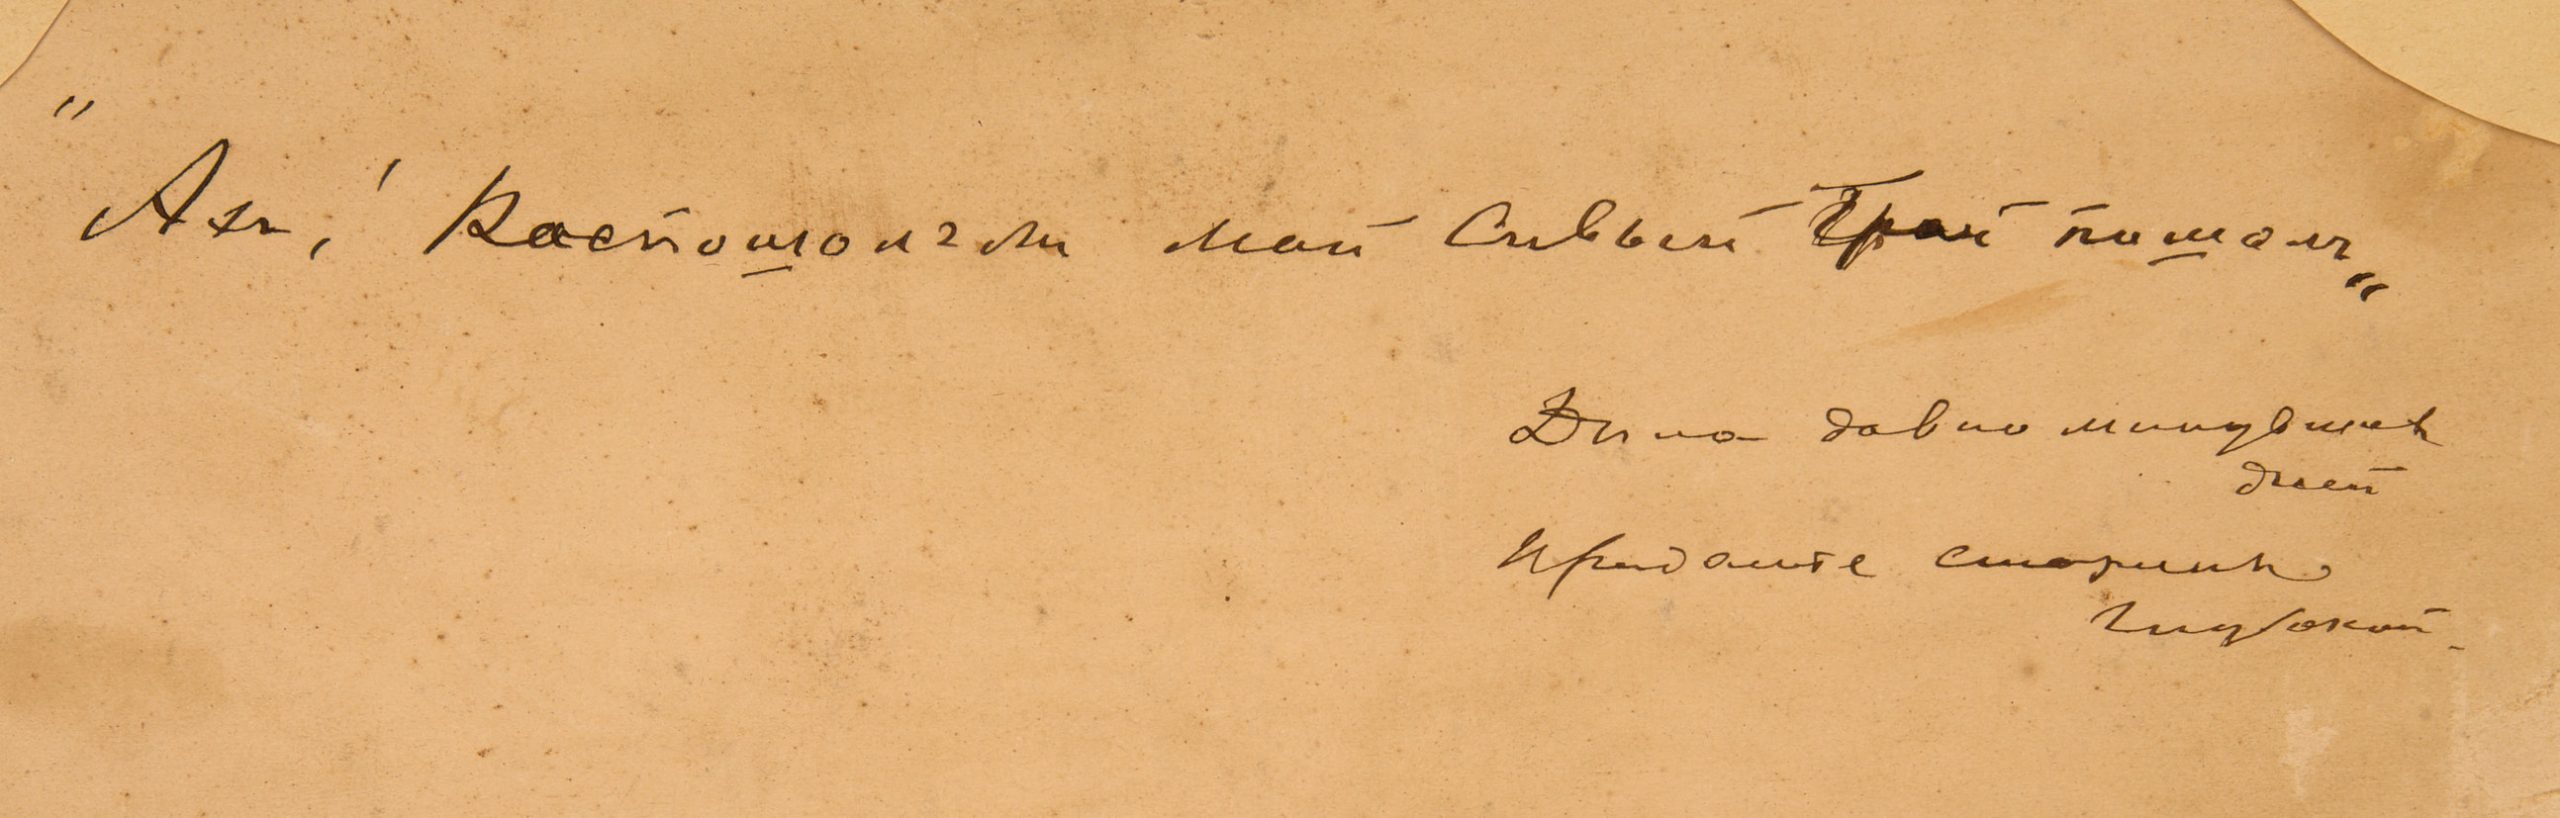 "Ахъ,! Распошолъ ли мой Сивый Грай пошолъ„
Дѣла давно минувшихъ
дней
Преданье старины
глубокой.